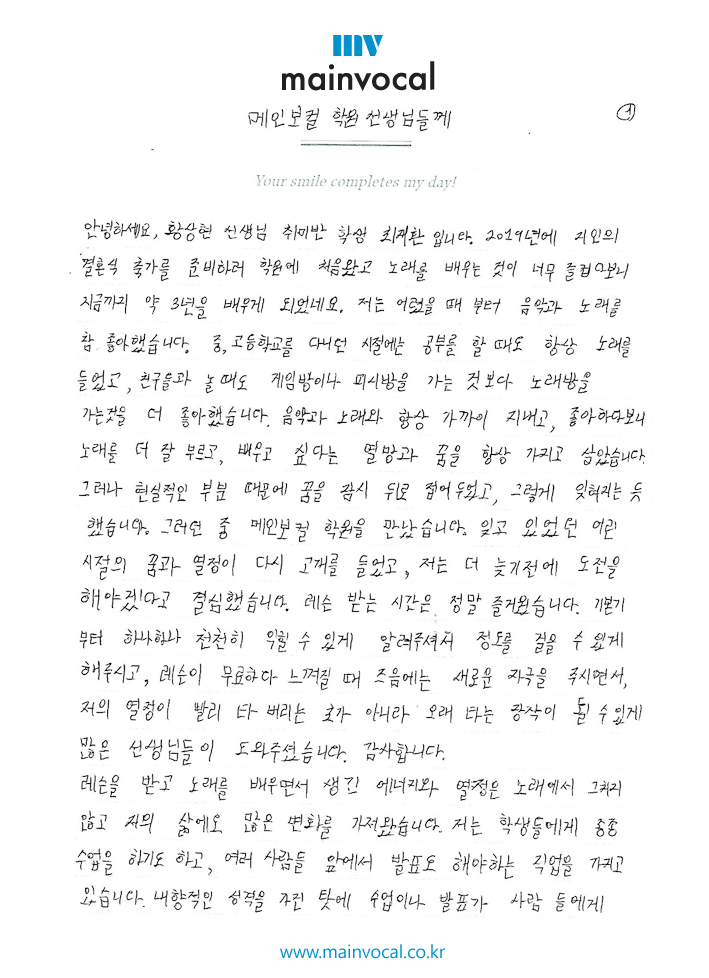 mv
mainvocal
메인보컬 학원 선생님들께
①
Your smile completes my day!
안녕하세요, 황상현 선생님 취미반 학생 최재환 입니다. 2019년에 지인의
결혼식 축가를 준비하러 학원에 처음왔고 노래를 배우는 것이 너무 즐겁다보니
지금까지 약 3년을 배우게 되었네요. 저는 어렸을 때 부터 음악과 노래를
참 좋아했습니다. 중,고등학교를 다니던 시절에는 공부를 할 때도 항상 노래를
들었고, 친구들과 놀 때도 게임방이나 피시방을 가는 것보다 노래방을
가는것을 더 좋아했습니다. 음악과 노래와 항상 가까이 지내고, 좋아하다보니
노래를 더 잘 부르고, 배우고 싶다는 열망과 꿈을 항상 가지고 살았습니다.
그러나 현실적인 부분 때문에 꿈을 잠시 뒤로 접어두었고, 그렇게 잊혀지는 듯
했습니다. 그러던 중 메인보컬 학원을 만났습니다. 잊고 있었던 어린
시절의 꿈과 열정이 다시 고개를 들었고, 저는 더 늦기전에 도전을
해야겠다고 결심했습니다. 레슨 받는 시간은 정말 즐거웠습니다. 기본기
부터 하나하나 천천히 익힐 수 있게 알려주셔서 정도를 걸을 수 있게
해주시고, 레슨이 무료하다 느껴질 때 즈음에는 새로운 자극을 주시면서,
저의 열정이 빨리 타 버리는 초가 아니라 오래 타는 장작이 될 수 있게
많은 선생님들이 도와주셨습니다. 감사합니다.
레슨을 받고 노래를 배우면서 생긴 에너지와 열정은 노래에서 그치지
않고 저의 삶에도 많은 변화를 가져왔습니다. 저는 학생들에게 종종
수업을 하기도 하고, 여러 사람들 앞에서 발표도 해야하는 직업을 가지고
있습니다. 내향적인 성격을 가진 탓에 수업이나 발표가 사람 들에게
www.mainvocal.co.kr